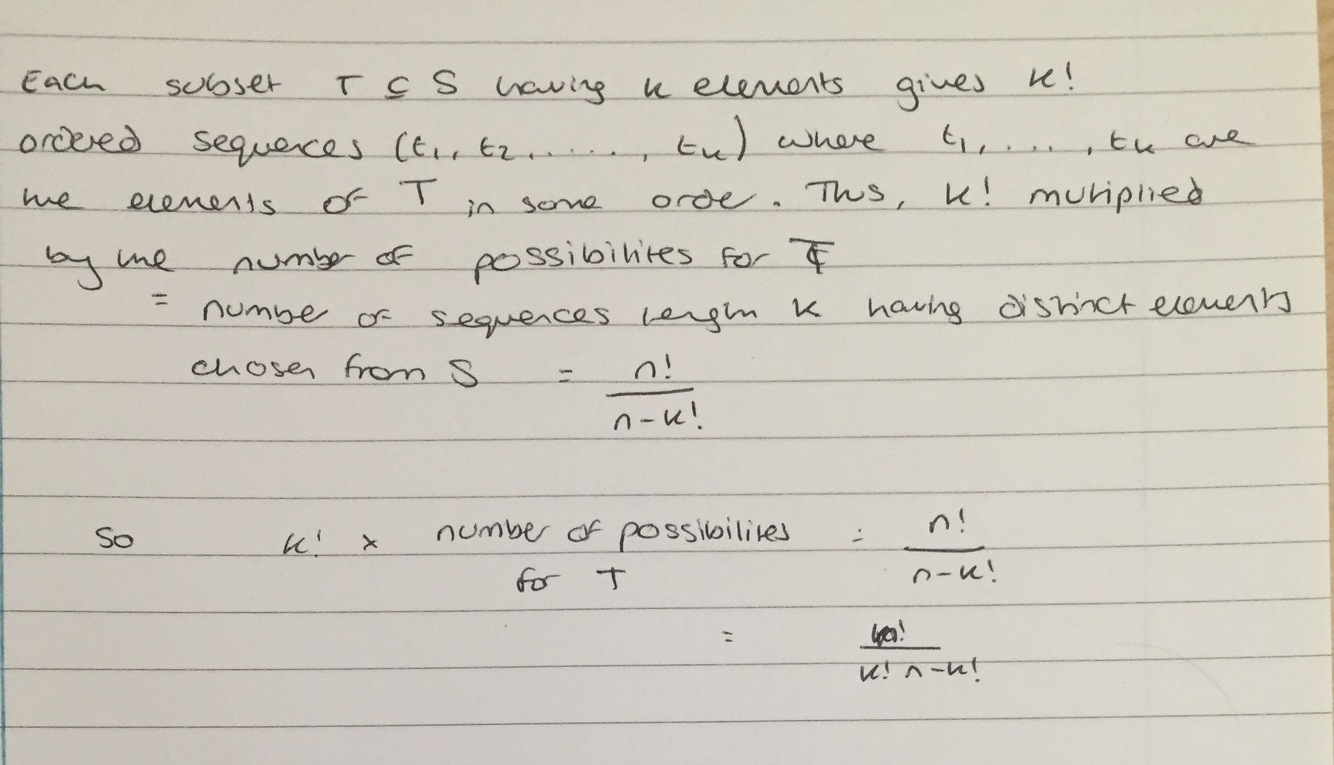 Each subset T ⊆ S having k elements gives k!
ordered sequences (t₁, t₂, ....., tₖ) where t₁, ...., tₖ are
the elements of T in some order. Thus, k! multiplied
by the number of possibilites for T
= number of sequences length k having distinct elements
chosen from S = n!
n-k!
So k! × number of possibilites = n!
for T n-k!
= n!
k! n-k!